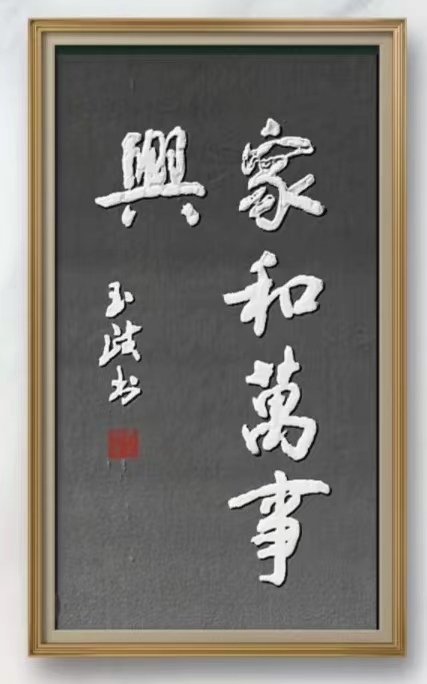 家和萬事
興
玉波书